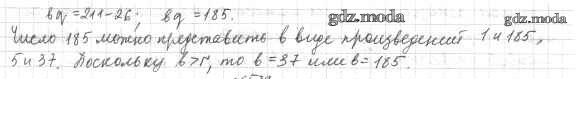 bq = 211 - 26; bq = 185.
gdz.moda
gdz.moda
Число 185 можно представить в виде произведений 1 и 185,
5 и 37. Поскольку b > r, то b = 37 или b = 185.